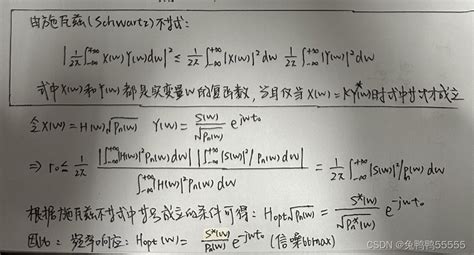 由施瓦兹(Schwartz)不等式:
|1/2π ∫_{-∞}^{+∞} X(w)Y(w)dw|² ≤ 1/2π ∫_{-∞}^{+∞} |X(w)|² dw 1/2π ∫_{-∞}^{+∞} |Y(w)|² dw
式中X(w)和Y(w)都是实变量w的复函数,当且仅当X(w)=KY*(w)时式中等式才成立
令X(w)=H(w)√Pn(w) Y(w)= S(w)/√Pn(w) e^{jwt₀}
⇒ r₀ ≤ 1/2π |∫_{-∞}^{+∞} |H(w)|² Pn(w) dw| |∫_{-∞}^{+∞} |S(w)|²/Pn(w) dw| / ∫_{-∞}^{+∞} |H(w)|² Pn(w) dw = 1/2π ∫_{-∞}^{+∞} |S(w)|²/Pn(w) dw
根据施瓦兹不等式中等号成立的条件可得: Hopt√Pn(w) = S*(w)/√Pn*(w) e^{-jwt₀}
频率响应: Hopt(w) = S*(w)/Pn(w) e^{-jwt₀} (信噪比max)
CSDN @兔鸭鸭55555